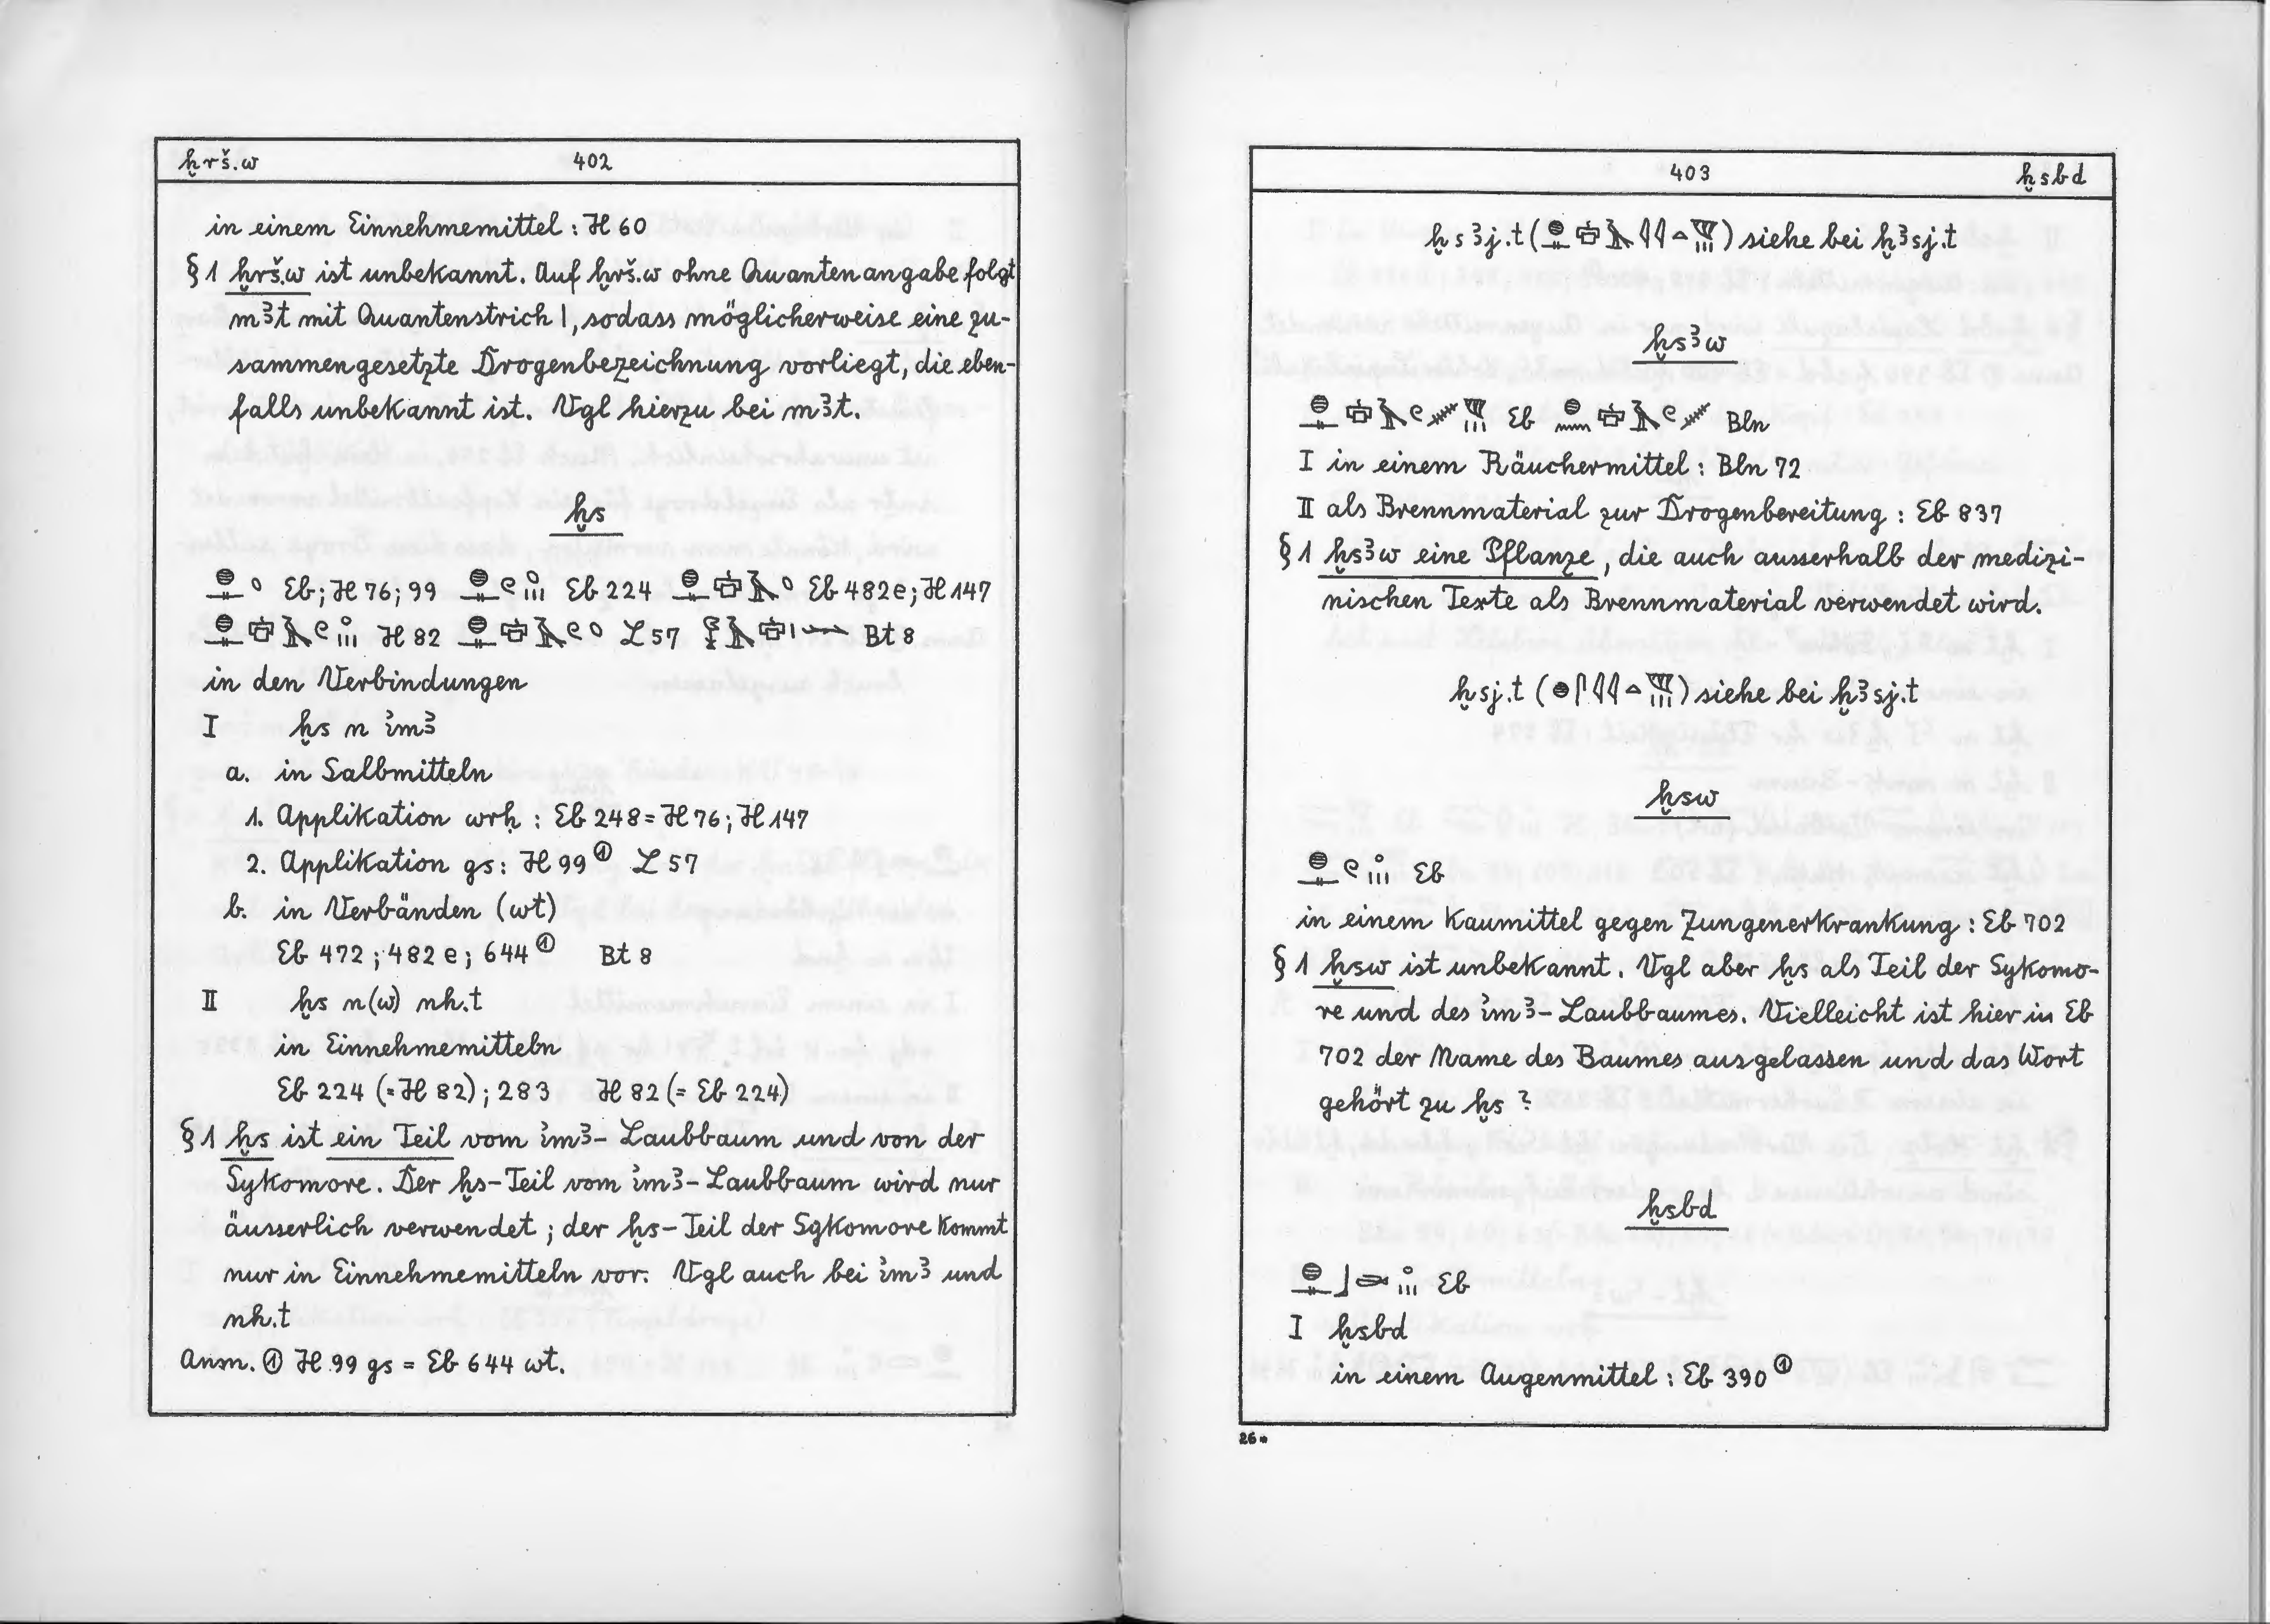 ḫrš.w 402
in einem Einnehmemittel : H 60
§ 1 ḫrš.w ist unbekannt. Auf ḫrš.w ohne Quantenangabe folgt
mꜣt mit Quantenstrich I, sodass möglicherweise eine zu-
sammengesetzte Drogenbezeichnung vorliegt, die eben-
falls unbekannt ist. Vgl hierzu bei mꜣt.
ḫs
Eb; H 76; 99 Eb 224 Eb 482e; H 147
H 82 L 57 Bt 8
in den Verbindungen
I ḫs n ỉmꜣ
a. in Salbmitteln
1. Applikation wrḥ : Eb 248 = H 76; H 147
2. Applikation gs: H 99 ① L 57
b. in Verbänden (wt)
Eb 472; 482 e; 644 ① Bt 8
II ḫs n(w) nh.t
in Einnehmemitteln
Eb 224 (= H 82); 283 H 82 (= Eb 224)
§ 1 ḫs ist ein Teil vom ỉmꜣ- Laubbaum und von der
Sykomore. Der ḫs-Teil vom ỉmꜣ- Laubbaum wird nur
äusserlich verwendet; der ḫs-Teil der Sykomore kommt
nur in Einnehmemitteln vor. Vgl auch bei ỉmꜣ und
nh.t
Anm. ① H 99 gs = Eb 644 wt.
403 ḫsbd
ḫsꜣj.t ( ) siehe bei ḫꜣsj.t
ḫsꜣw
Eb Bln
I in einem Räuchermittel : Bln 72
II als Brennmaterial zur Drogenbereitung : Eb 837
§ 1 ḫsꜣw eine Pflanze, die auch ausserhalb der medizi-
nischen Texte als Brennmaterial verwendet wird.
ḫsj.t ( ) siehe bei ḫꜣsj.t
ḫsw
Eb
in einem Kaumittel gegen Zungenerkrankung : Eb 702
§ 1 ḫsw ist unbekannt. Vgl aber ḫs als Teil der Sykomo-
re und des ỉmꜣ- Laubbaumes. Vielleicht ist hier in Eb
702 der Name des Baumes ausgelassen und das Wort
gehört zu ḫs ?
ḫsbd
Eb
I ḫsbd
in einem Augenmittel : Eb 390 ①
26*